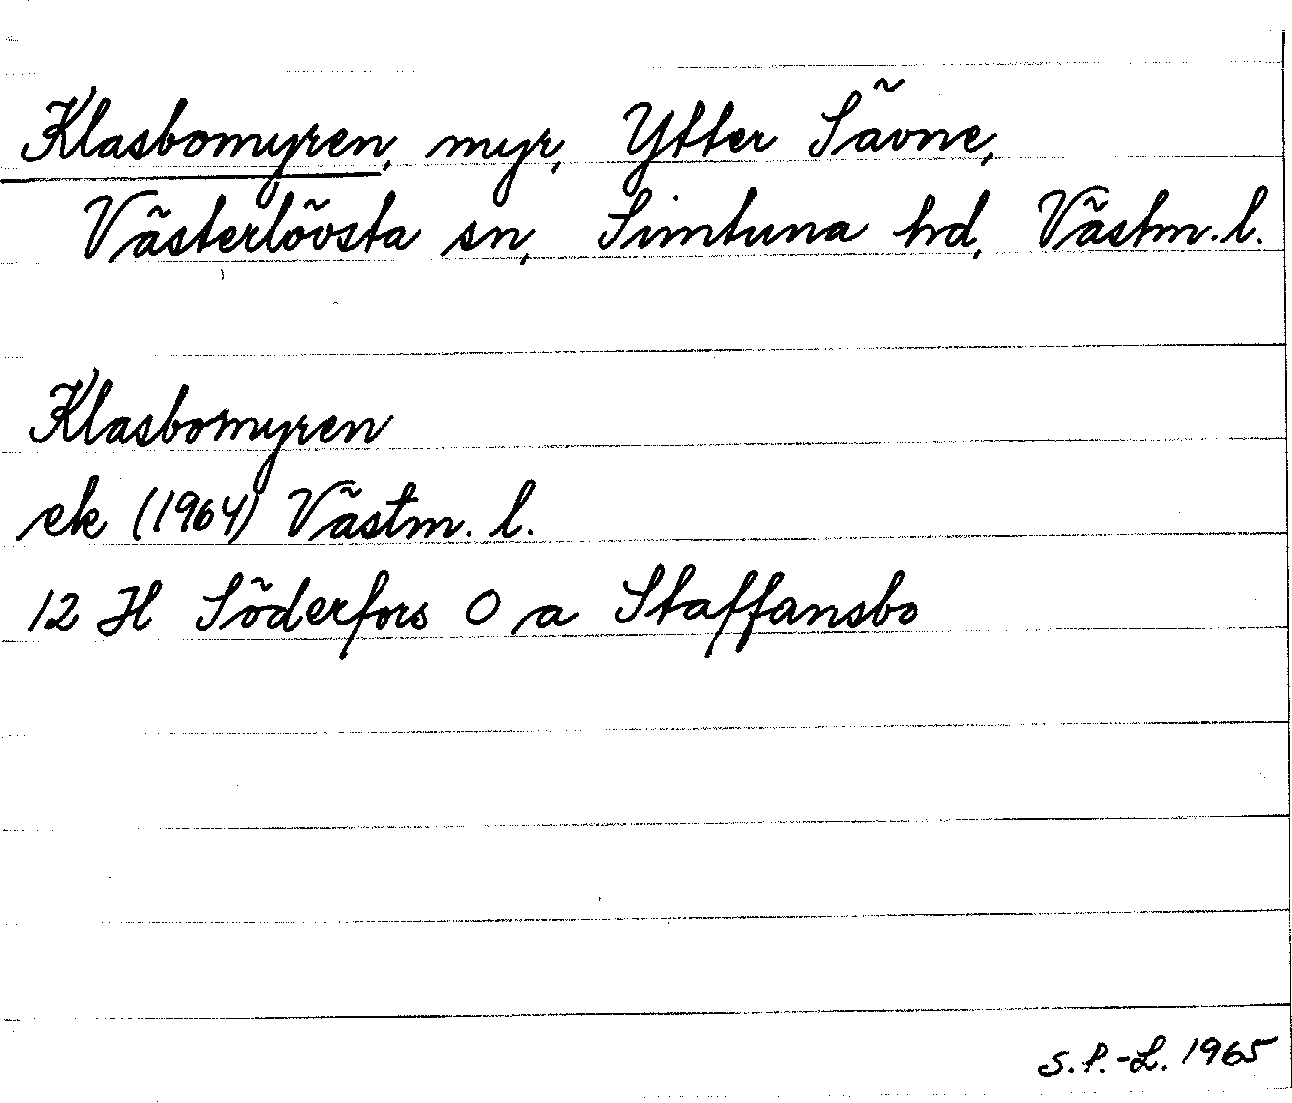 Klasbomyren, myr, Ytter Sävne,
Västerlövsta sn, Simtuna hd, Västm. l.
Klasbomyren
ek (1964) Västm. l.
12 H Söderfors O a Staffansbo
S. P.-L. 1965